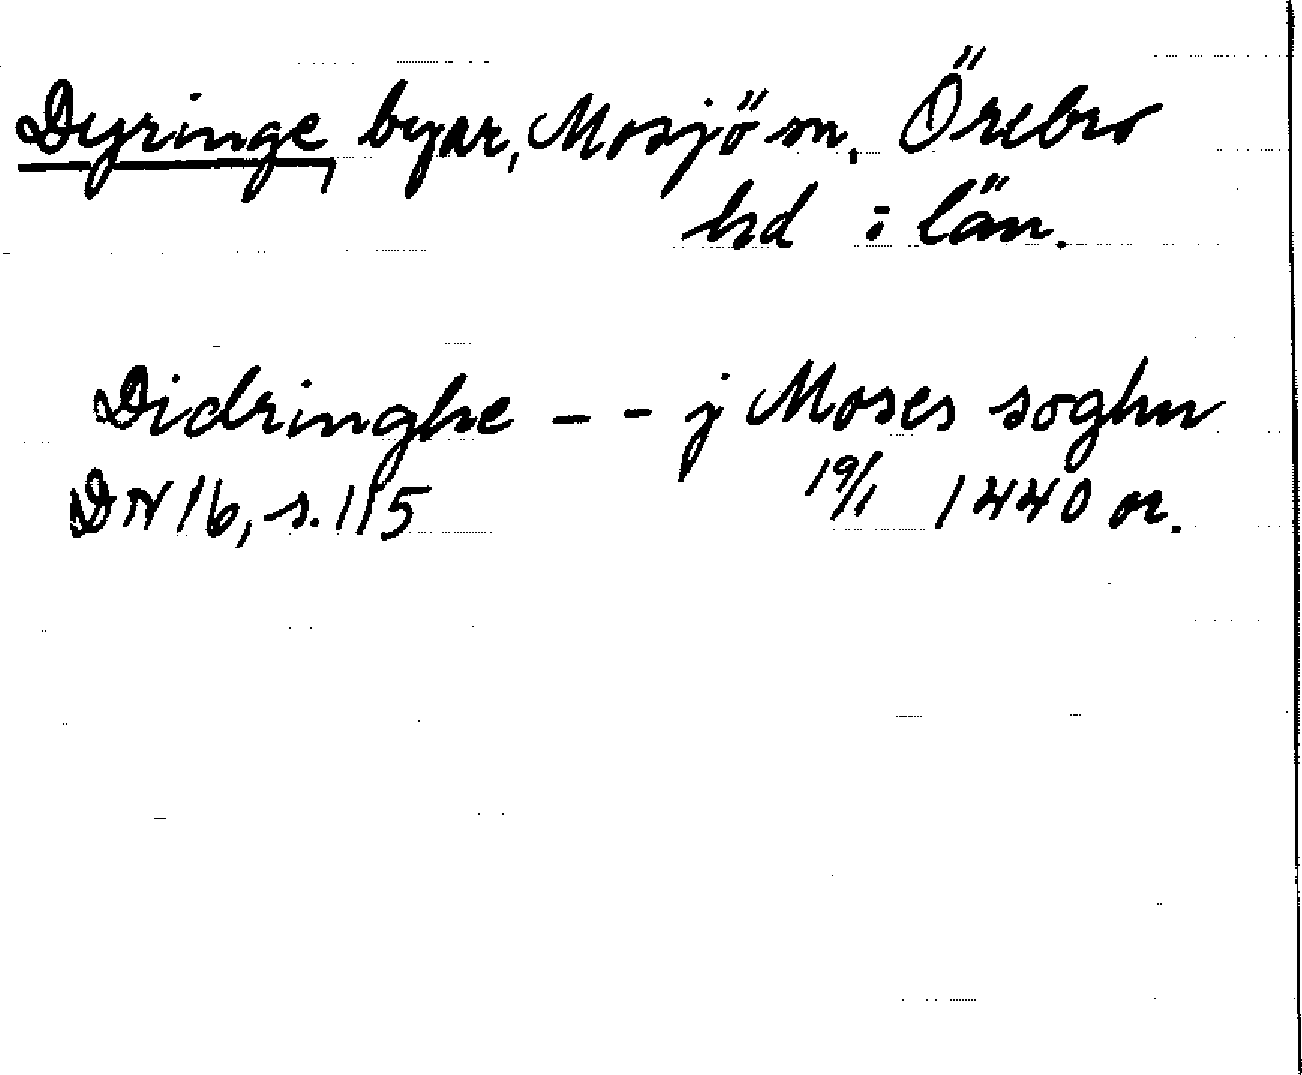 Dyringe, byar, Mosjö sn. Örebro
hd i län.
Didringhe - - j Moses soghn
DN 16, s. 115 19/1 1440 or.